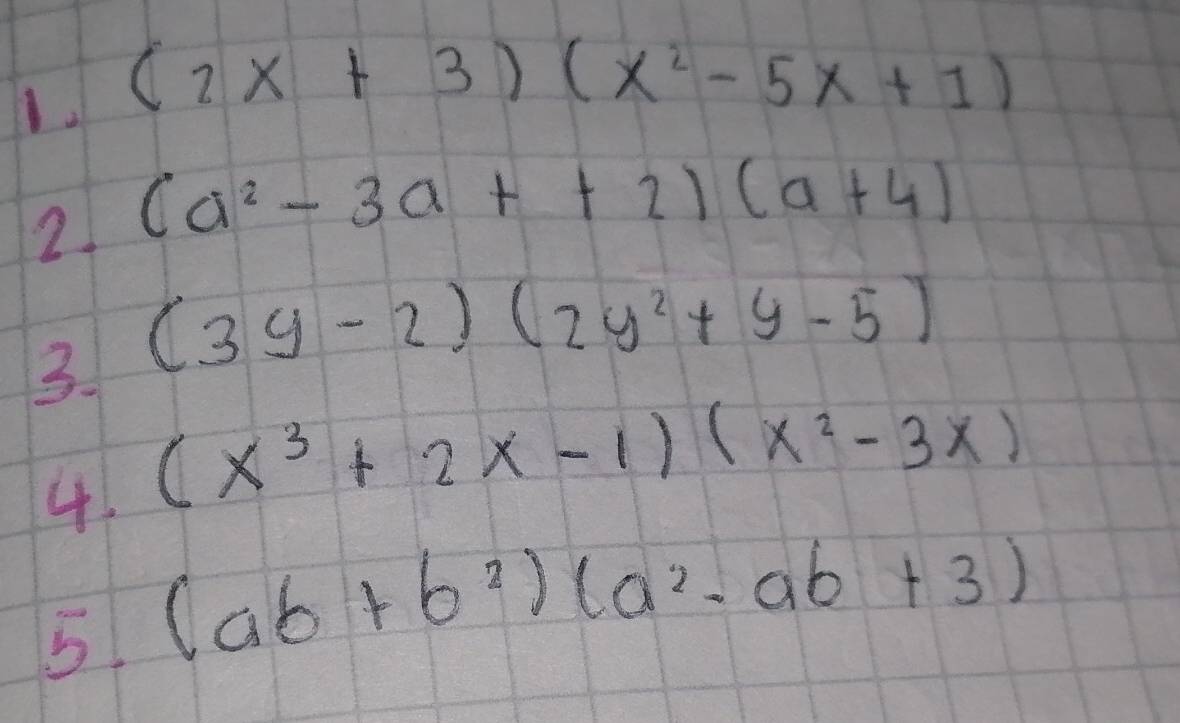 1. (2x + 3) (x² - 5x + 1)
2. (a² - 3a + + 2) (a + 4)
3. (3y - 2) (2y² + y - 5)
4. (x³ + 2x - 1) (x² - 3x)
5. (ab + b²) (a² - ab + 3)